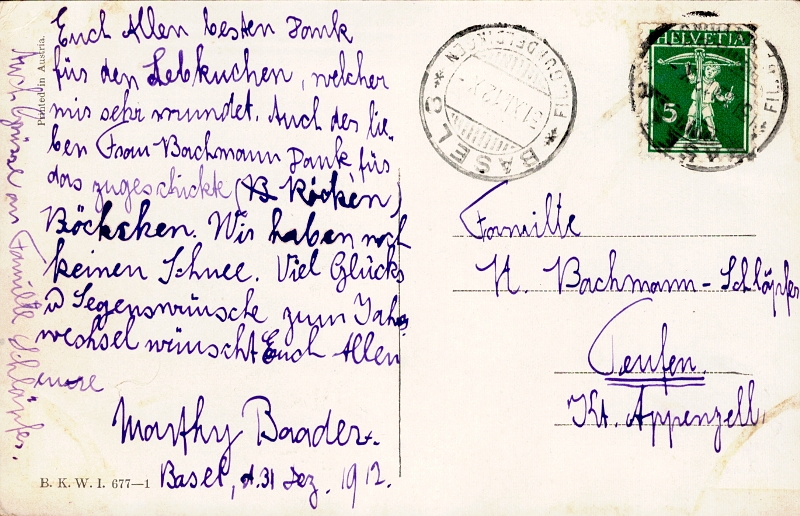 Euch Allen besten Dank
für den Lebkuchen, welcher
mir sehr mundet. Auch der lie-
ben Frau Bachmann Dank für
das zugeschickte
Böckchen. Wir haben noch
keinen Schnee. Viel Glücks
u Segenswünsche zum Jahres
wechsel wünscht Euch Allen
eure
Marthy Baader.
Basel, d. 31 Dez. 1912.
Auch Grüsse an Familie Schläpfer.
Printed in Austria.
B. K. W. I. 677—1
BASEL 8
FIL. GUNDELDINGEN
HELVETIA
5
FIL.
Familie
N. Bachmann-Schläpfer
Teufen.
Kt. Appenzell.